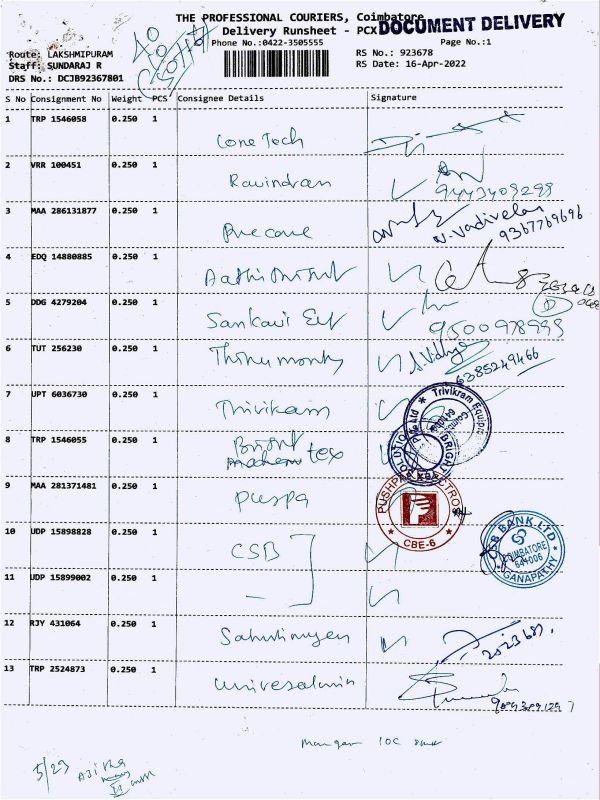 THE PROFESSIONAL COURIERS, Coimbatore
Delivery Runsheet - PCX
DOCUMENT DELIVERY
Phone No.:0422-3505555
Page No.:1
Route: LAKSHMIPURAM
RS No.: 923678
Staff: SUNDARAJ R
RS Date: 16-Apr-2022
DRS No.: DCJB92367801
S No Consignment No Weight PCS Consignee Details Signature
1 TRP 1546058 0.250 1 Cone Tech
2 VRR 100451 0.250 1 Ravindran
9443409298
3 MAA 286131877 0.250 1 Precone
N. Vadivelan
9367769696
4 EDQ 14880885 0.250 1
5 DDG 4279204 0.250 1 Sankavi
9500978993
6 TUT 256230 0.250 1 Thirumonty
S. Vidhya
6385249466
7 UPT 6036730 0.250 1 Trivikam
Trivikram Equip
8 TRP 1546055 0.250 1 Bright tex
BRIGHT SOLUTION
9 MAA 281371481 0.250 1 puspa
PUSHPA ELECTRON
CBE-6
10 UDP 15898828 0.250 1 CSB
CSB BANK LTD
COIMBATORE
641006
GANAPATHY
11 UDP 15899002 0.250 1
12 RJY 431064 0.250 1
13 TRP 2524873 0.250 1
5/23